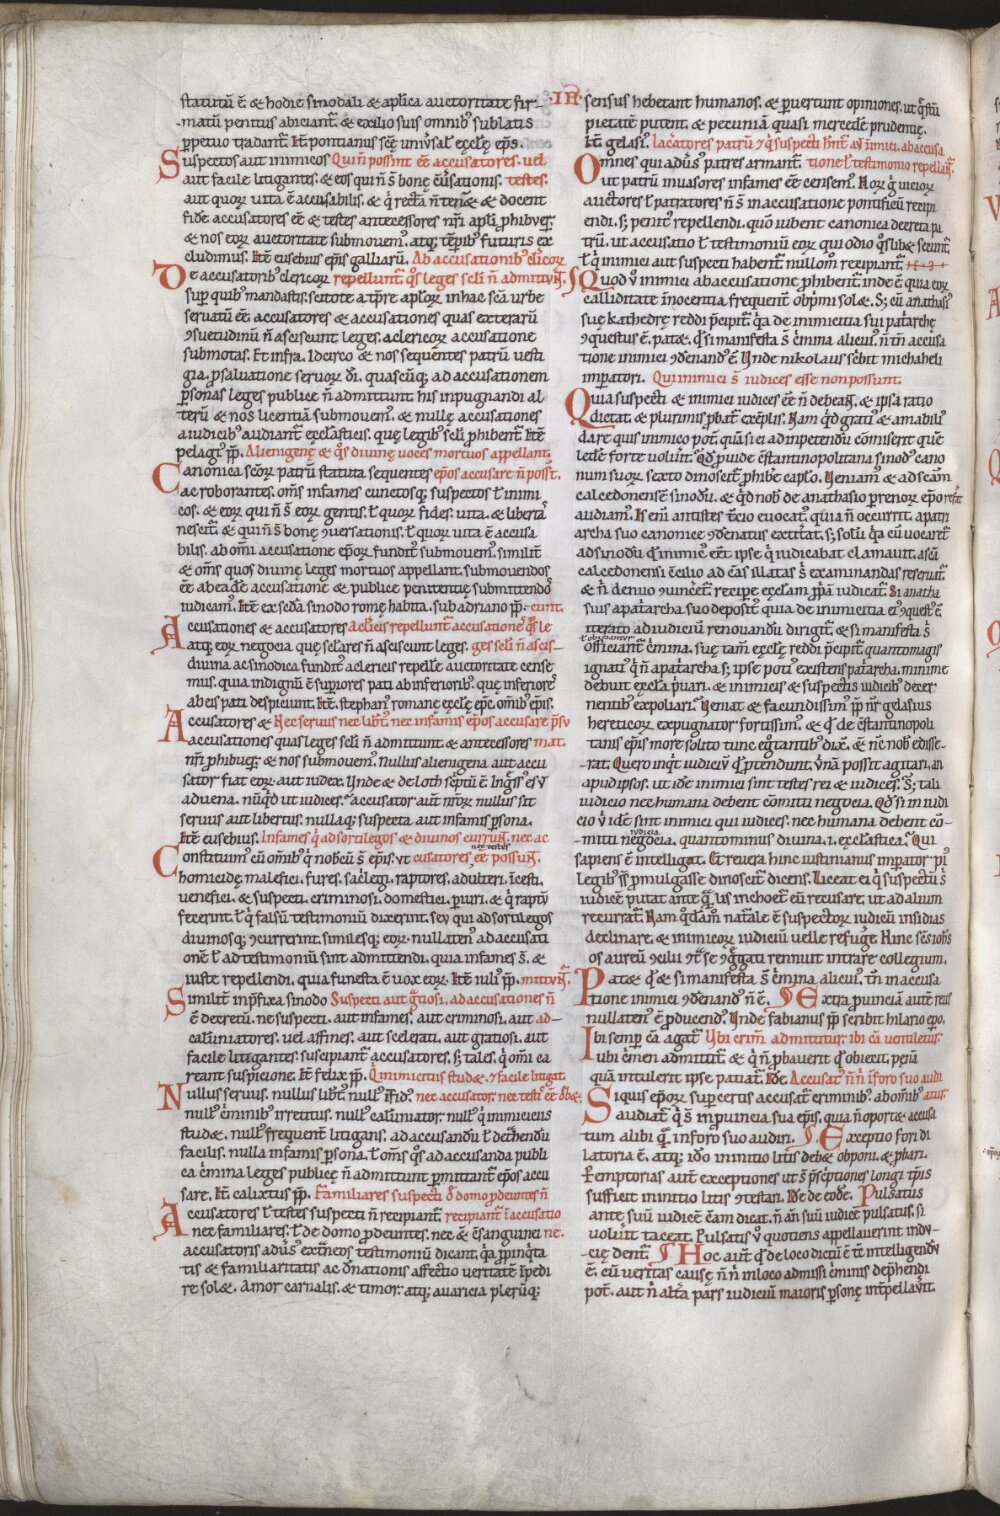 ·III·
statutū ē & hodie sinodali & aplica auctoritate fir-
matū penitus abiciant̄. & exilio suis omnib; sublatis
ꝑpetuo tradant̄. Itē pontianus scę univsał ęcclę eps.
Suspectos aut inimicos Qui n̄ possint eē accusatores. vel
aut facile litigantes. & eos qui n̄ s̄ bonę cūsationis. testes.
aut quor uita ē accusabilis. & q̄ rectā n̄ tenēt & docent
fidē accusatores eē & testes antecessores nr̄i apłi ꝓhibuer̄
& nos eor auctoritate submouem̄. atq; tēporib; futuris ex
cludimus. Itē eusebius epis galliarū. Ab accusationib; clicor
De accusatorib; clericor repellunt̄ qs leges secłi n̄ admittun̄t.
sup quib; mandastis. scitote a tp̄re aplor in hac scā urbe
seruatū eē. accusatores & accusationes quas exterarū
ꝯsuetudinū n̄ asciscunt leges. a clericor accusatione
submotas. Et infra. Idcirco & nos sequentes patrū uesti
gia. ꝓ saluatione seruor dī. quascūq; ad accusationem
ꝑsonas leges publicę n̄ admittunt. his impugnandi al
terū & nos licentiā submouem̄. & nullę accusationes
a iudicib; audiant̄ ęccłasticis. quę legib; secłi ꝓhibent̄. Itē
pelagi pp. Alienigenę & qs diuinę uoces mortuos appellant.
Canonica scor patrū statuta sequentes epos accusare n̄ poss̄t.
ac roborantes. oms infames cunctosq; suspectos ł inimi
cos. & eor qui n̄ s̄ eor gentis. ł quor fides. uita. & libertas
nescit̄. & qui n̄ s̄ bonę ꝯuersationis. ł quor uita ē accusa
bilis. ab omī accusatione epor fundit̄ submouem̄. similit̄
& oms quos diuinę leges mortuos appellant. submouendos
eē ab eadē accusatione & publicę penitentię submittendos
iudicam̄. Itē ex scda sinodo romę habita. sub adriano pp. cunt.
Accusationes & accusatores A cleicis repellunt̄ accusatione qs le
atq; eor negocia quę sclares n̄ asciscunt leges. ges scłi n̄ ascis-
diuina ac sinodica fundit̄ a clericis repelle auctoritate cense
mus. quia indignū ē suꝑiores pati ab inferiorib; quę inferiores
ab eis pati despiciunt. Itē. stephan̄ romanę ęcclę epc. omib; epis.
Accusatores & Nec seruis nec libt̄. nec infamis epos accusare pr̄sū
accusationes quas leges scłi n̄ admittunt. & antecessores mat.
nr̄i ꝓhibuer̄. & nos submouem̄. Nullus alienigena aut accu
sator fiat eor. aut iudex. Unde & de loth scptū ē. Ingss̄ es ut
aduena. nūqd ut iudices. accusator aut̄ uror nullus sit
seruus aut libertus. nullaq; suspecta aut infamis ꝑsona.
Itē eusebius. Infames q̄ ad sortilegos & diuinos currunt̄. nec ac
Constituim̄ cū omib; q̄ nobcū s̄ epis. vt cusatores nec testes eē possun̄t.
homicidę. malefici. fures. sacłegi. raptores. adulteri. īcesti.
uenefici. & suspecti. criminosi. domestici. ꝑiuri. & q̄ raptū
fecerint. ł q̄ falsū testimoniū dixerint. seu qui ad sortilegos
diuinosq; ꝯcurrerint. similesq; eor. nullaten̄ ad accusati
onē ł ad testimoniū sint admittendi. quia infames s̄. &
iuste repellendi. quia funesta ē uox eor. Itē iuli pp. mittunt̄.
Similit̄ in p̄fixa sinodo Suspecti aut grosi. ad accusationes n̄
ē decretū. ne suspecti. aut infames. aut criminosi. aut ad-
calūniatores. vel affines. aut scelerati. aut gratiosi. aut
facile litigantes. suscipiant̄ accusatores. s; tales. q̄ omi ca
reant suspicione. Itē felix pp. Q̄ inimicitiis studēt. & facile litigat
Nullus seruus. nullus libt̄. null īfid; nec accusator nec testis ē dbet
null̄ c̄minib; irretitus. null̄ calūniator. null̄ q̄ inimiciciis
studet. null̄ frequent̄ litigans. ad accusandū ł detͣhendū
facilis. nulla infamis ꝑsona. ł oms qs ad accusanda publi
ca c̄mina leges publicę n̄ admittunt ꝑmittant̄ epos accu
sare. Itē calixtus pp. Familiares suspecti & domo ꝓdeūtes n̄
Accusatores ł testes suspecti n̄ recipiant̄. recipiant̄ ī accusatio
nec familiares. ł de domo ꝓdeuntes. nec & csanguinei ne.
accusatoris aduersus extneos testimoniū dicant. qa ꝓpinqta
tis & familiaritatis ac dnationis affectio ueritatē īpedi
re solet. Amor carnalis. & timor. atq; auaricia plerūq;
sensus hebetant humanos. & ꝑuertunt opiniones. ut qstū
pietatē putent. & pecuniā quasi mercedē prudentię.
Itē gelasi. lacatores patrū & q suspecti hnt̄ aut inimici. ab accusa
Omnes qui adūs patres armant̄. tione ł testimonio repellant̄.
ut patrū inuasores infames eē censem̄. Hor ḡ uicior
auctores ł patratores n̄ s̄ in accusatione pontificū recipi
endi. s; penit̄ repellendi. quō iubent canonica decreta pa
trū. ut accusatio ł testimoniū eor qui odio qslibet secunt̄.
ł q̄ inimici aut suspecti habent̄ nullom̄ recipiant̄.
¶ Quod v̄ inimici ab accusatione ꝓhibent̄. inde ē quia eor
calliditate īnocentia frequent̄ obprimi solet. S; cū anathasi
suę kathedrę reddi p̄cipit̄. qa de inimicitia sui patͣrchę
ꝯquestus ē. patet. q si manifesta s̄ c̄mina alicui. n̄ tn̄ accusa
tione inimici ꝯdenand ē. Unde nikolaus sc̄bit michaheli
impatori. Qui inimici s̄ iudices esse non possunt.
Quia suspecti & inimici iudices eē n̄ debeant. & ipsa ratio
dictat. & plurimis ꝓbat̄ exēplis. Nam qd gratiu & amabiliu
dare quis inimico pot. quā si ei ad inpetendū comiserit quē
ledē forte voluit. Qd ꝓuide cstantinopolitana sinod; cano
num suor sexto dinoscit̄ ꝓhibe caplo. Ueniam & ad scām
calcedonensē sinodū. & qd nob de anathasio prenor epo refert
audiam̄. Is eni antistes tcio euocat̄. quia n̄ occurrit. apatri
archa suo canonice ꝯdēnatus extitat. s; soli qa cū uocaret̄
ad sinodū q inimic ēt ipse q̄ iudicabat clamauit. a scā
calcedonensi cilio ad cās illatas s̄ examinandas reseruat̄.
& n̄ denuo ꝯuincet̄. reciꝑe ęccłam ꝓpā iudicat̄. Si anatha
sius a patͣrcha suo deposit̄ quia de inimicitia ei ꝯquest̄ ē
iterato ad iudiciū renouandū dirigit̄. & si manifesta s̄
ł obiciantur
officiant̄ c̄mina. suę tam̄ ęcclę reddi p̄cipit̄. quantomagis
ignati q̄ n̄ a patͣrcha. s; ipse poti existens patͣrcha. minime
debuit ęccła ꝑuari. & inimicis & suspectis iudicib; decer
nentib; expoliari. Ueniat & facundissim̄ pp nr̄ gelasius
hereticor expugnator fortissim̄. & q de cstantinopoli
tanis epis more solito tunc cūgtantib; dix̄. & nc nob edisse-
rat. Quero inqt iudiciū q ꝓtendunt. vn̄a possit agitari. an
apud ipsos. ut idē inimici sint testes rei & iudices. S; tali
iudicio nec humana debent cōmitti negocia. Qd si in iudi
cio v̄ idē sint inimici qui iudices. nec humana debent cō-
mitti iudicia negocia. quantominus diuina. i. ęccłastica. Qui
sapiens ē intelligat. Et reuera hinc iustinianus impator pi
legib; ss ꝓmulgasse dinoscit̄ dicens. Liceat ei q̄ suspectū s̄
iudicē putat. anteq̄ lis inchoet̄ eū recusare. ut ad alium
recurrat. Nam qdam̄ natͣle ē suspector iudicū insidias
declinare. & inimicor iudiciū uelle refuge. Hinc scs iohs
os aureū ꝯsiliū ꝯt se ꝯgregati rennuit intrare collegium.
Patet q & si manifesta s̄ c̄mina alicui. tn̄ in accusa
tione inimici ꝯdenand n̄ ē. ¶ Extra ꝓuinciā aut̄ reus
nullaten̄ ē ꝓducend. Unde fabianus pp scribit hilario epo.
Ibi semp cā agat̄ Ubi crim̄ admittitur. ibi cā ventiletur.
ubi c̄men admittit̄. & q̄ n̄ ꝓbauerit q obiecit. penā
quā intulerit ipse patiat̄. Idē Accusat̄ n̄ n̄ ī foro suo audi
Si quis epor sup certis accusat̄ criminib. ab omib; atur.
audiat̄ q s̄ in ꝓuincia sua epis. quia n̄ oportet accusa
tum alibi q̄ in foro suo audiri. ¶ Exceptio fori di
latoria ē. atq; ido in initio litis debet obponi. & ꝓbari.
Ꝑemptorias aut̄ exceptiones ut s̄ p̄scptiones longi tpis
sufficit in initio litis ꝯtestari. Idē de eode. Pulsatus
ante suū iudicē cām dicat. n̄ an̄ suū iudicē pulsatus. si
voluit taceat. Pulsatis v̄ quotiens appellauerint indu-
cię dent̄. ¶ Hoc aut̄ q de loco dictū ē tc intelligendū
ē. cū veritas causę n̄ n̄ in loco admissi c̄minis depͣhendi
pot. aut n̄ altͣ pars iudiciū maioris ꝑsonę int̄pellauit.